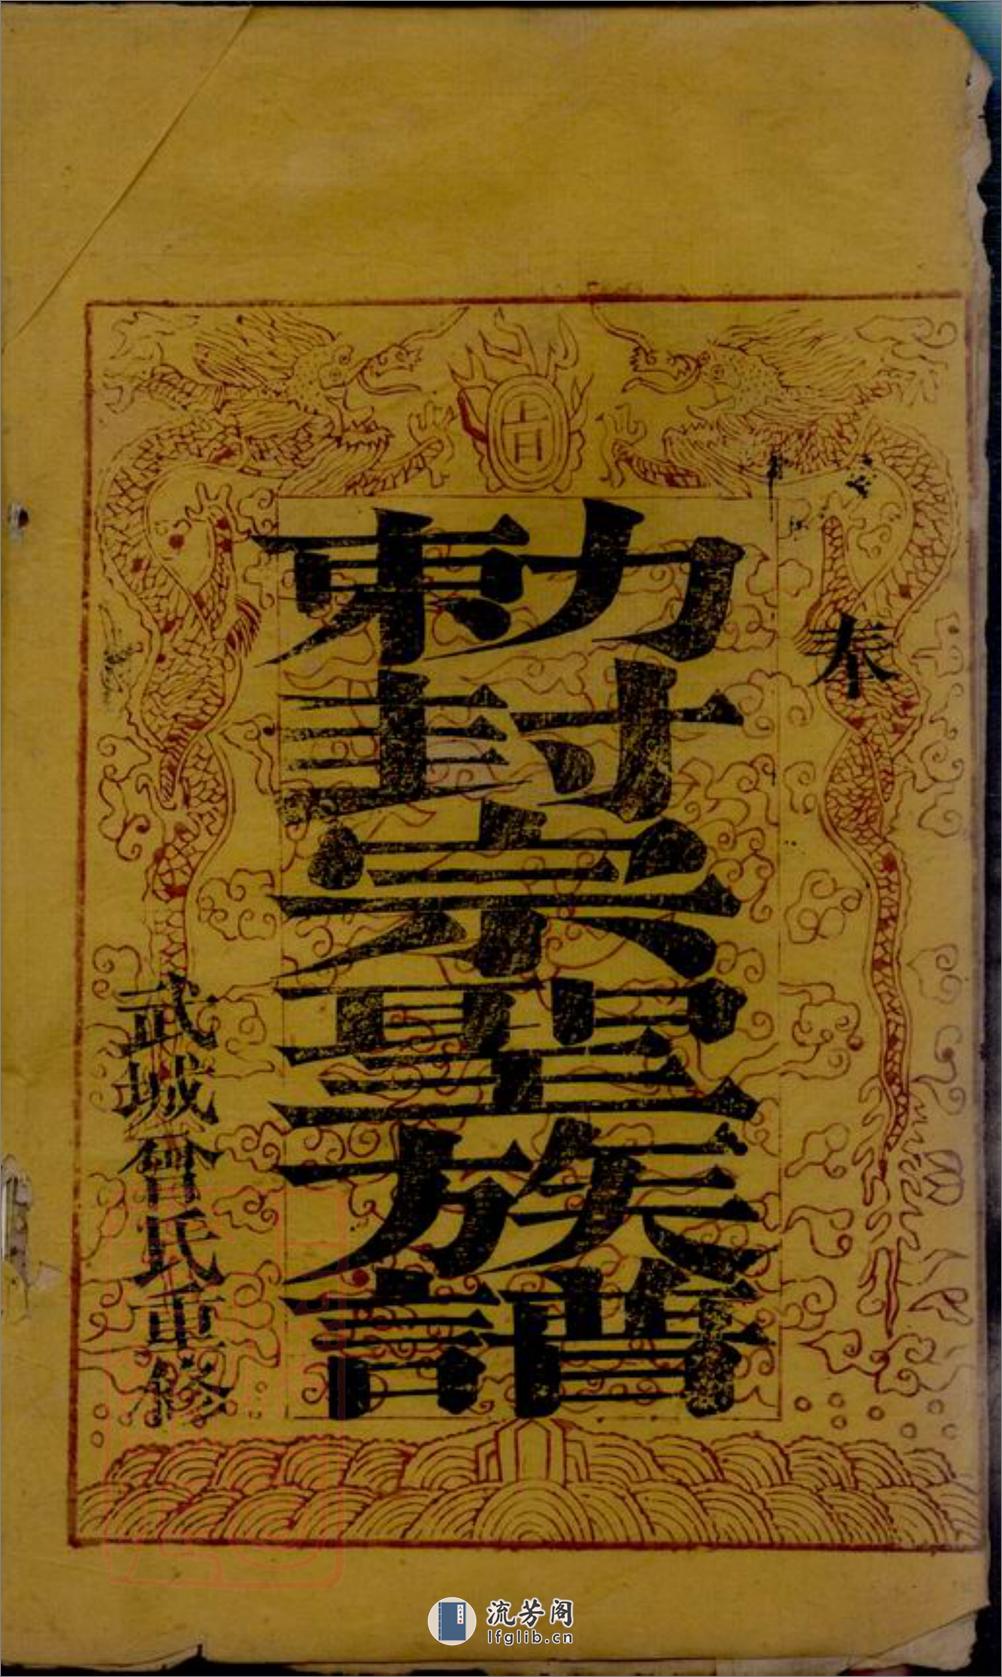 旨
奉
勅封宗聖族譜
武城曾氏重修
流芳阁
lfglib.cn